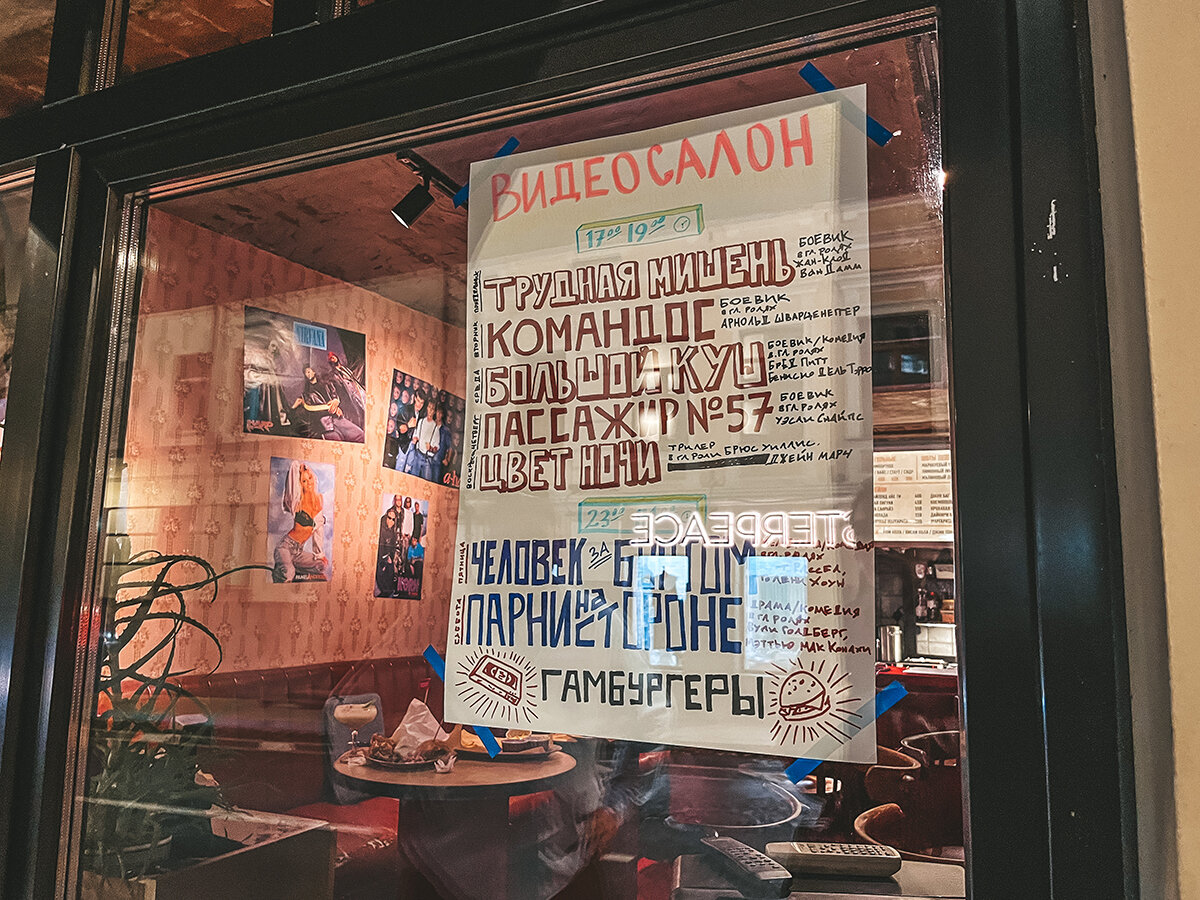 ВИДЕОСАЛОН
17⁰⁰ 19⁰⁰
ПОНЕДЕЛЬНИК
ТРУДНАЯ МИШЕНЬ
БОЕВИК
В ГЛ РОЛЯХ
ЖАН-КЛОД
ВАН ДАММ
ВТОРНИК
КОМАНДОС
БОЕВИК
В ГЛ РОЛЯХ
АРНОЛЬД ШВАРЦЕНЕГГЕР
СРЕДА
БОЛЬШОЙ КУШ
БОЕВИК/КОМЕДИЯ
В ГЛ РОЛЯХ
БРЕД ПИТТ
БЕНИСИО ДЕЛЬ ТОРО
ЧЕТВЕРГ
ПАССАЖИР №57
БОЕВИК
В ГЛ РОЛЯХ
УЭСЛИ СНАЙПС
ЦВЕТ НОЧИ
ТРИЛЕР
В ГЛ РОЛИ БРЮС УИЛЛИС.
ДЖЕЙН МАРЧ
23⁰⁰
TERPEACE
ПЯТНИЦА
ЧЕЛОВЕК ЗА БОРТОМ
В ГЛ РОЛЯХ
ХОУН
СУББОТА
ПАРНИ НА СТОРОНЕ
ДРАМА/КОМЕДИЯ
В ГЛ РОЛЯХ
ВУПИ ГОЛДБЕРГ,
МЭТТЬЮ МАК КОНАХИ
ГАМБУРГЕРЫ